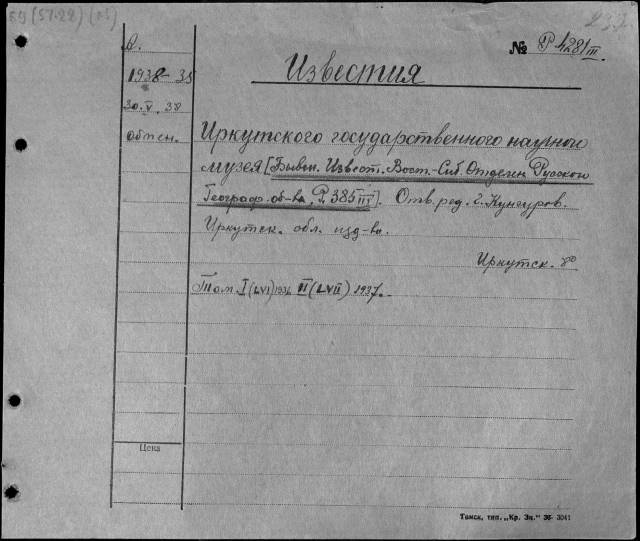 БУ (57.22) (05)
В.
№ Р 4281 III.
1938-35
Известия
30.V.38
обмен.
Иркутского государственного научного
музея [Бывш. Извест. Вост.-Сиб. Отделен. Русского
Географ. об-ва, Р. 385 III]. Отв. ред. Г. Кунгуров.
Иркутск. обл. изд-во.
Иркутск. 8°
Том I (LVI) 1936. II (LVII) 1937.
Цена
Томск, тип. „Кр. Зн." 36 3041